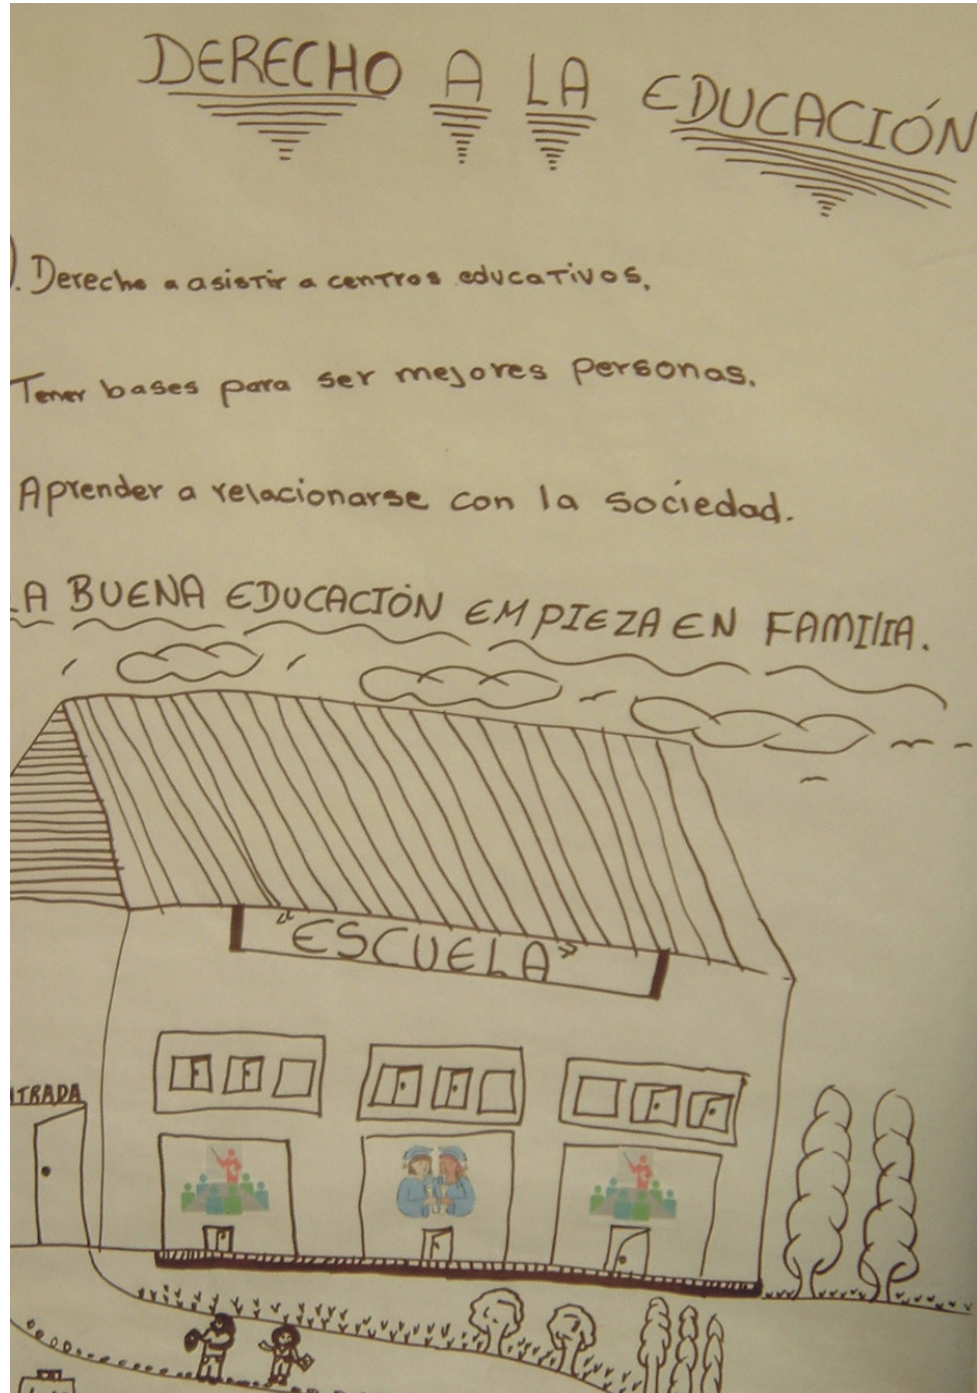 DERECHO A LA EDUCACIÓN
). Derecho a asistir a centros educativos.
Tener bases para ser mejores personas.
Aprender a relacionarse con la sociedad.
LA BUENA EDUCACIÓN EMPIEZA EN FAMILIA.
"ESCUELA"
NTRADA